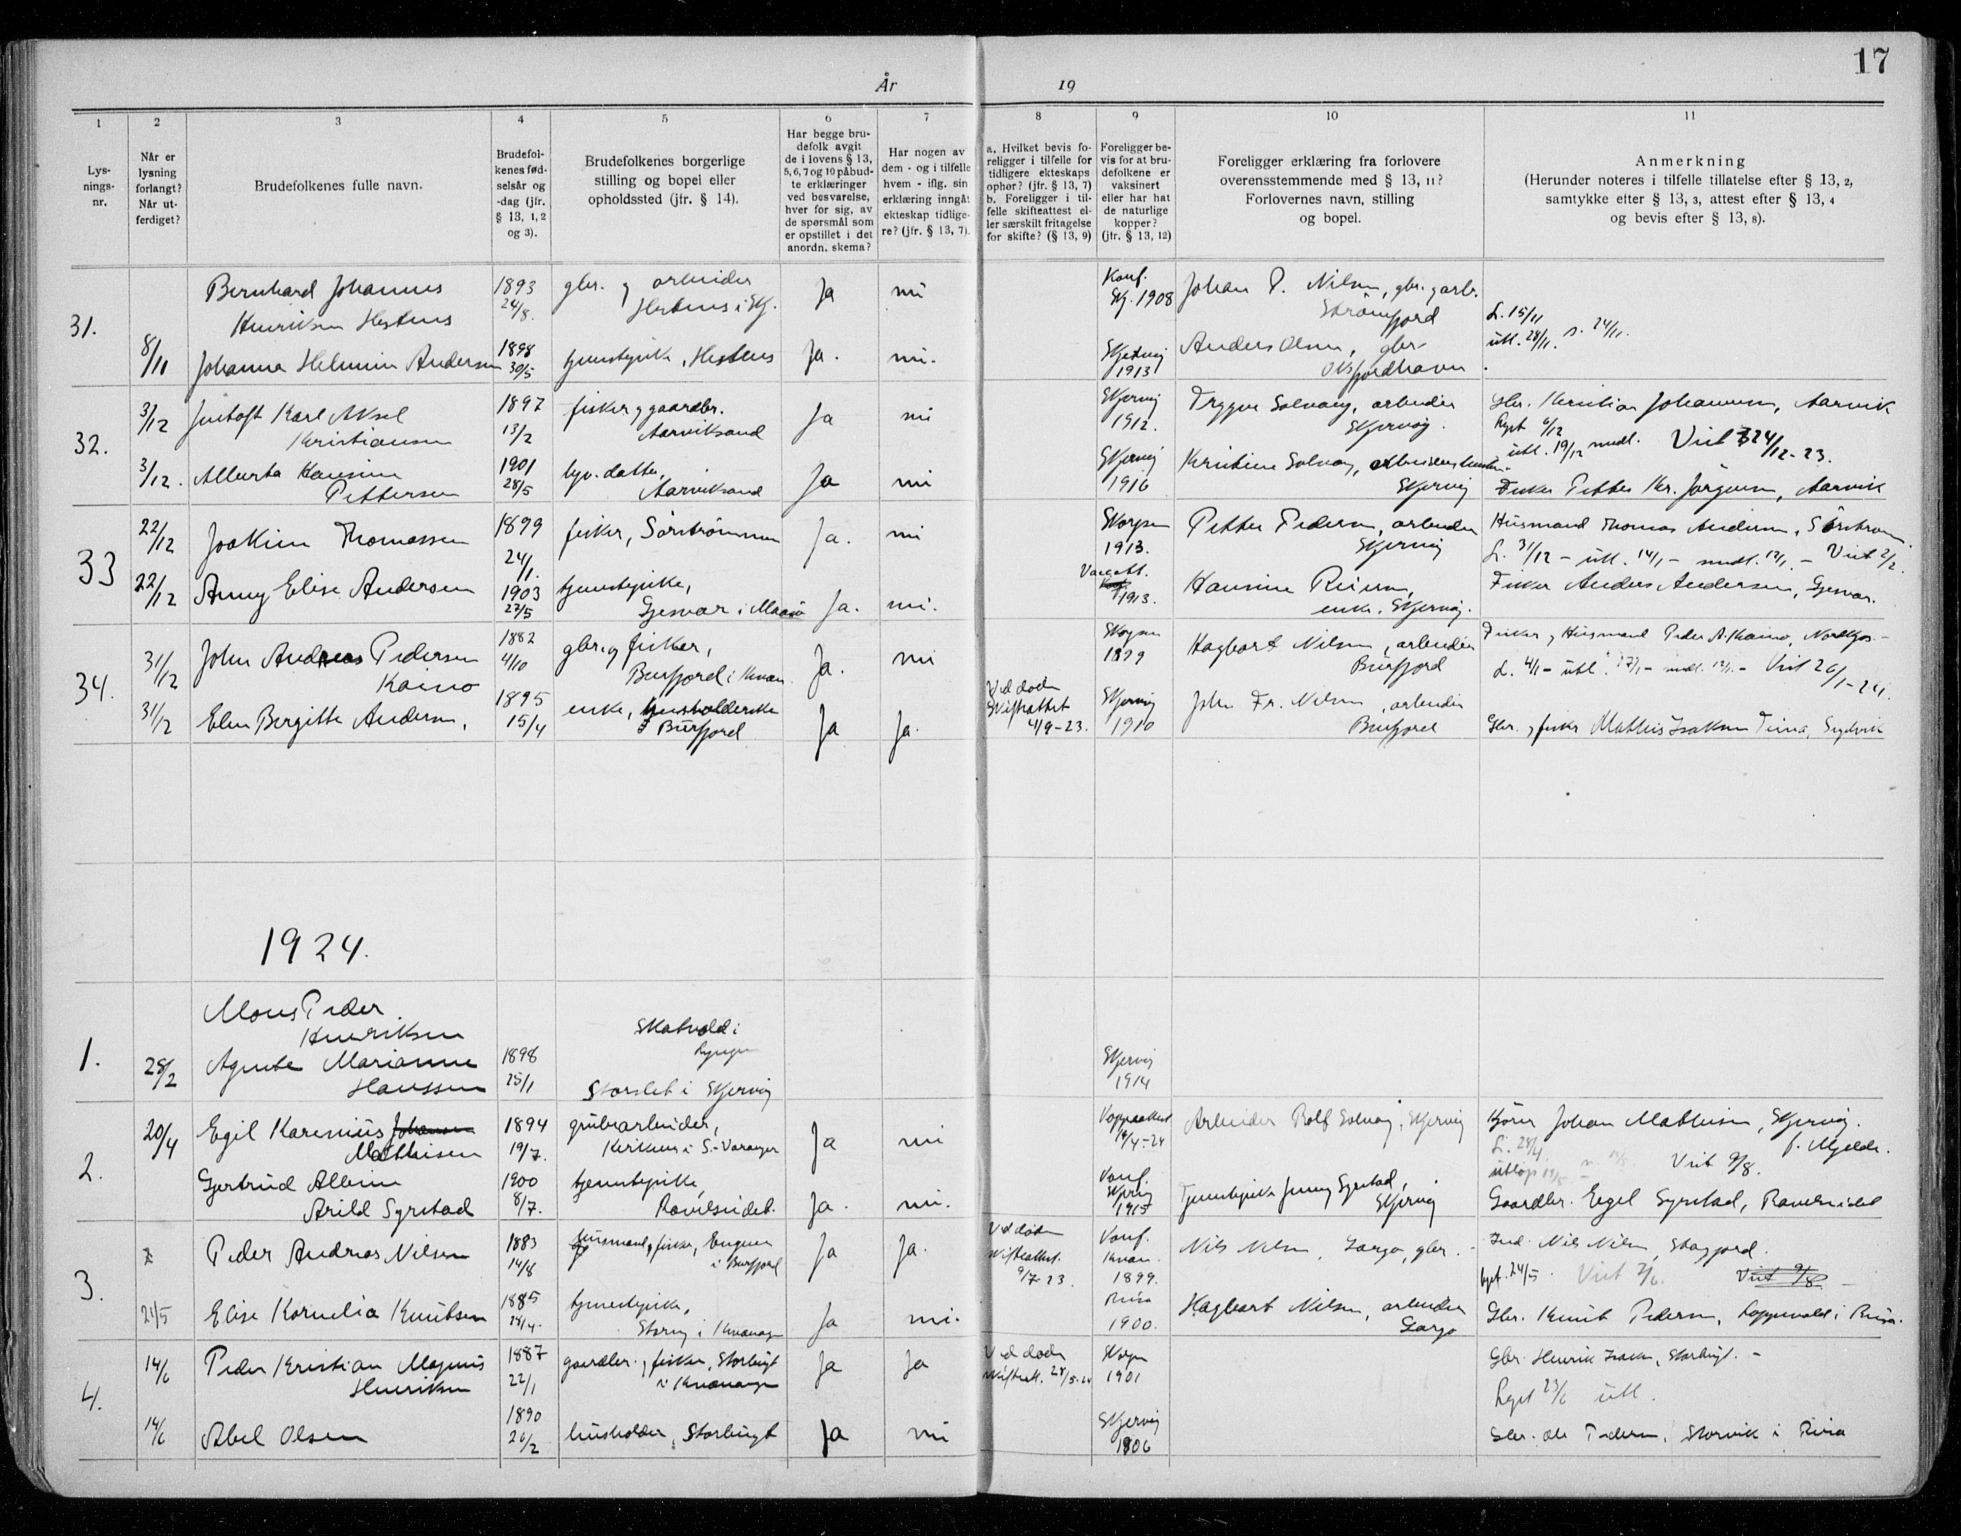 17
År
19
1
2
3
4
5
6
7
8
9
10
11
Lys-
nings-
nr.
Når er
lysning
forlangt?
Når ut-
ferdiget?
Brudefolkenes fulle navn.
Brudefol-
kenes fød-
selsår og
-dag (jfr.
§ 13, 1, 2
og 3).
Brudefolkenes borgerlige
stilling og bopel eller
opholdssted (jfr. § 14).
Har begge bru-
defolk avgit
de i lovens § 13,
5, 6, 7 og 10 påbud-
te erklæringer
ved besvarelse,
hver for sig, av
de spørsmål som
er opstillet i det
anordn. skema?
Har nogen av
dem - og i tilfelle
hvem - iflg. sin
erklæring inngåt
ekteskap tidlige-
re? (jfr. § 13, 7).
a. Hvilket bevis fo-
religger i tilfelle for
tidligere ekteskaps
ophør? (jfr. § 13, 7)
b. Foreligger i til-
felle skifteattest el-
ler særskilt fritagelse
for skifte? (§ 13, 9)
Foreligger be-
vis for at bru-
defolkene er
vaksinert
eller har hat
de naturlige
kopper?
(jfr. § 13, 12)
Foreligger erklæring fra forlovere
overensstemmende med § 13, 11?
Forlovernes navn, stilling
og bopel.
Anmerkning
(Herunder noteres i tilfelle tillatelse efter § 13, 2,
samtykke efter § 13, 3, attest efter § 13, 4
og bevis efter § 13, 8).
31.
Bernhard Johannes
Henriksen Hestnes
1893
24/8.
gbr. og arbeider
Hestnes i Skj.
Ja
nei
Konf.
Skj. 1908
Johan P. Nilsen, gbr. g arb.
Strømfjord
L. 15/11
utl. 28/11. n. 24/11.
8/11
Johanna Helmine Andersen
1898
30/5
tjenestepike, Hestnes
Ja.
nei.
Skjervøy
1913
Anders Olsen, gbr.
32.
3/12
Karl Aksel
Kristiansen
1897
13/2
fisker g gaardbr.
Aarviksand
Ja
nei
Skjervøy
1912.
Trygve Solvang, arbeider
Skjervøy.
Gbr. Kristian Johansen, Aarvik
lyst 6/12
utl. 19/12 medl. Viet 24/12-23.
3/12.
Alberta Hansine
Pettersen
1901
28/5
Aarviksand
Ja
nei
Skjervøy
1916
Kristine Solvang,
Skjervøy
Fisker Petter Kr. Jørgensen, Aarvik
33
22/12
Joakim Thomassen
1899
24/1.
fisker, Sörströmmen
Ja.
nei
Skorpen
1913.
Petter Pedersen, arbeider
Skjervøy
Husmand Thomas Andersen, Sörström.
L. 31/12 - utl. 14/1 - medl. 12/1. - Viet 2/2.
22/12
Anny Elise Andersen
1903
27/5
tjenestepike,
Gjesvær i Maasö
Ja.
nei.
1913.
Hansine Reiersen,
enke, Skjervøy.
Fisker Anders Andersen, Gjesvær.
34.
31/12
John Andreas Pedersen
Kaino
1882
4/10
gbr. og fisker,
Burfjord i Kvæn.
Ja.
nei
Skorpen
1899
Hagbart Nilsen, arbeider
Burfjord
L. 4/1 - utl. 17/1 - medl. 12/1. - Viet 20/1-24.
31/12
Elen Bergitte Andersen,
1895
15/4
enke, husholderske
i Burfjord
Ja
Ja.
Ved død
Skifteattest
4/9-23.
Skjervøy
1910
John Fr. Nilsen, arbeider
Burfjord
Gbr. g fisker Mathis Isaksen
1924.
1.
Mons Peder
Henriksen
Skatvold i
Lyngen
28/2
Agnete Marianne
Hanssen
1898
25/1
Storslet i Skjervøy
Skjervøy
1914
2.
20/4
Egil Karenius Johansen
Mathisen
1894
19/7.
grubearbeider,
Kirkenes i S.-Varanger
Ja
nei
Koppeattest
14/4-24
Arbeider Rolf Solvang, Skjervøy
Johan Mathisen, Skjervøy.
f. Mjelde.
L. 28/4.
utløp 13/5 Viet 9/8.
Gertrud Albine
Arild Syrstad
1900
8/7.
tjenestepike,
Ravelseidet.
Ja.
nei.
Konf.
Skjervøy
1915
Tjenestepike Jenny Syrstad,
Skjervøy
Gaardbr. Engel Syrstad, Ravelseidet
3.
Peder Andreas Nilsen
1883
14/8
husmand g fisker,
i Burfjord
Ja
Ja.
Ved død
Skifteattest.
9/7-23.
Konf.
Kvæn.
1899.
Nils Nilsen, Sargo, gbr.
Ind. Nils Nilsen
lyst. 24/5. Viet 7/6. Viet 9/8
24/5
Elise Kornelia Knutsen
1885
28/4.
tjenestepike,
i Kvænangen
Ja
nei.
1900.
Hagbart Nilsen, arbeider
Sargo
Gbr. Knut Pedersen,
4.
14/6
Peder Kristian Magnus
Henriksen
1887
22/1
gaardbr. g fisker, Storbugt
i Kvænangen
Ja
Ja
Ved død
Skifteatt. 28/5-24
Skorpen
1901
Gbr. Henrik Isaksen, Storbugt. -
lyst 23/6 utl.
14/6
Abel Olsen
1890
26/2
husholder, Storbugt
Ja
nei
Skjervøy
1906
Gbr. Ole Pedersen, Storvik i